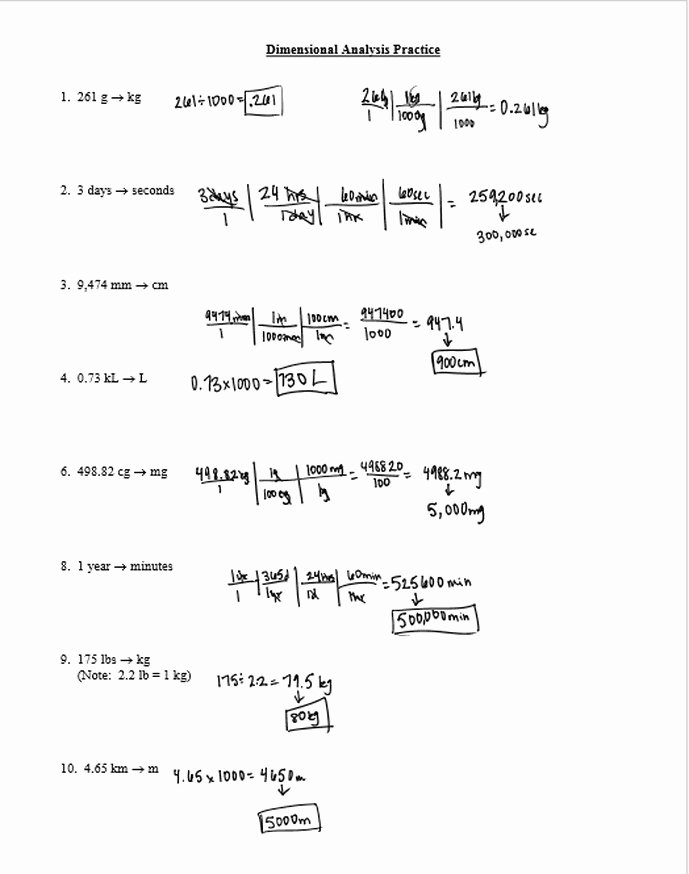 Dimensional Analysis Practice
1. 261 g → kg 261÷1000=.261 261g/1 | 1kg/1000g | 261kg/1000 = 0.261kg
2. 3 days → seconds 3days/1 | 24 hrs/1day | 60min/1hr | 60sec/1min | = 259,200sec
↓
300,000se
3. 9,474 mm → cm
9474mm/1 | 1m/1000mm | 100cm/1m = 947400/1000 = 947.4
↓
900cm
4. 0.73 kL → L 0.73×1000=730L
6. 498.82 cg → mg 498.82cg/1 | 1g/100cg | 1000mg/1g = 498820/100 = 4988.2mg
↓
5,000mg
8. 1 year → minutes 1yr/1 | 365d/1yr | 24hrs/1d | 60min/1hr =525600min
↓
500,000min
9. 175 lbs → kg
(Note: 2.2 lb = 1 kg) 175÷2.2=79.5kg
↓
80kg
10. 4.65 km → m 4.65×1000=4650m
↓
5000m